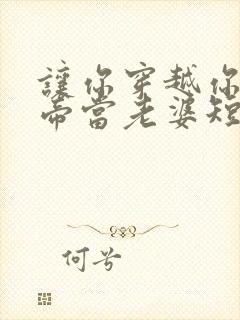 讓你穿越你
帝當老婆短
何兮